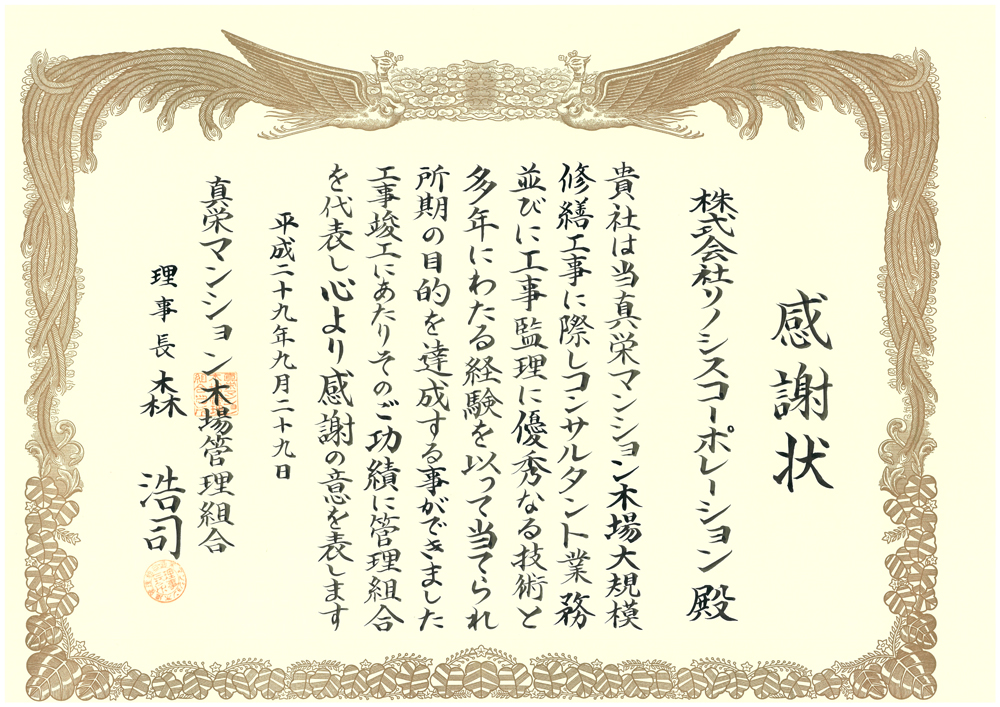 感謝状
株式会社リノシスコーポレーション 殿
貴社は当真栄マンション木場大規模
修繕工事に際しコンサルタント業務
並びに工事監理に優秀なる技術と
多年にわたる経験を以って当てられ
所期の目的を達成する事ができました
工事竣工にあたりそのご功績に管理組合
を代表し心より感謝の意を表します
平成二十九年九月二十九日
真栄マンション木場管理組合
理事長 森 浩司